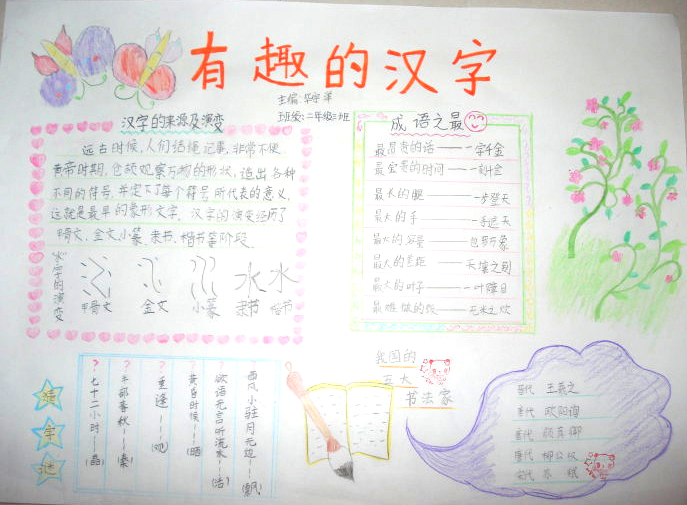 有趣的汉字
主编:
班级:二年级三班
汉字的来源及演变
远古时候,人们结绳记事,非常不便.
黄帝时期,仓颉观察万物的形状,造出各种
不同的符号,并定下了每个符号所代表的意义,
这就是最早的象形文字.汉字的演变经历了
甲骨文.金文.小篆.隶书.楷书等阶段.
"水"字的演变
水 水
甲骨文 金文 小篆 隶书 楷书
成语之最
最昂贵的话——一字千金
最宝贵的时间——一刻千金
最长的腿——一步登天
最大的手——一手遮天
最大的容量——包罗万象
最大的差距——天壤之别
最大的叶子——一叶障目
最难做的饭——无米之炊
猜字谜
?七十二小时——(晶)
?半部春秋——(秦)
?重逢——(观)
?黄昏时候——(晒)
?欲语无言听流水——(活)
?西风小驻月无边——(飘)
我国的
五大
书法家
晋代 王羲之
唐代 欧阳询
唐代 颜真卿
唐代 柳公权
宋代 苏轼